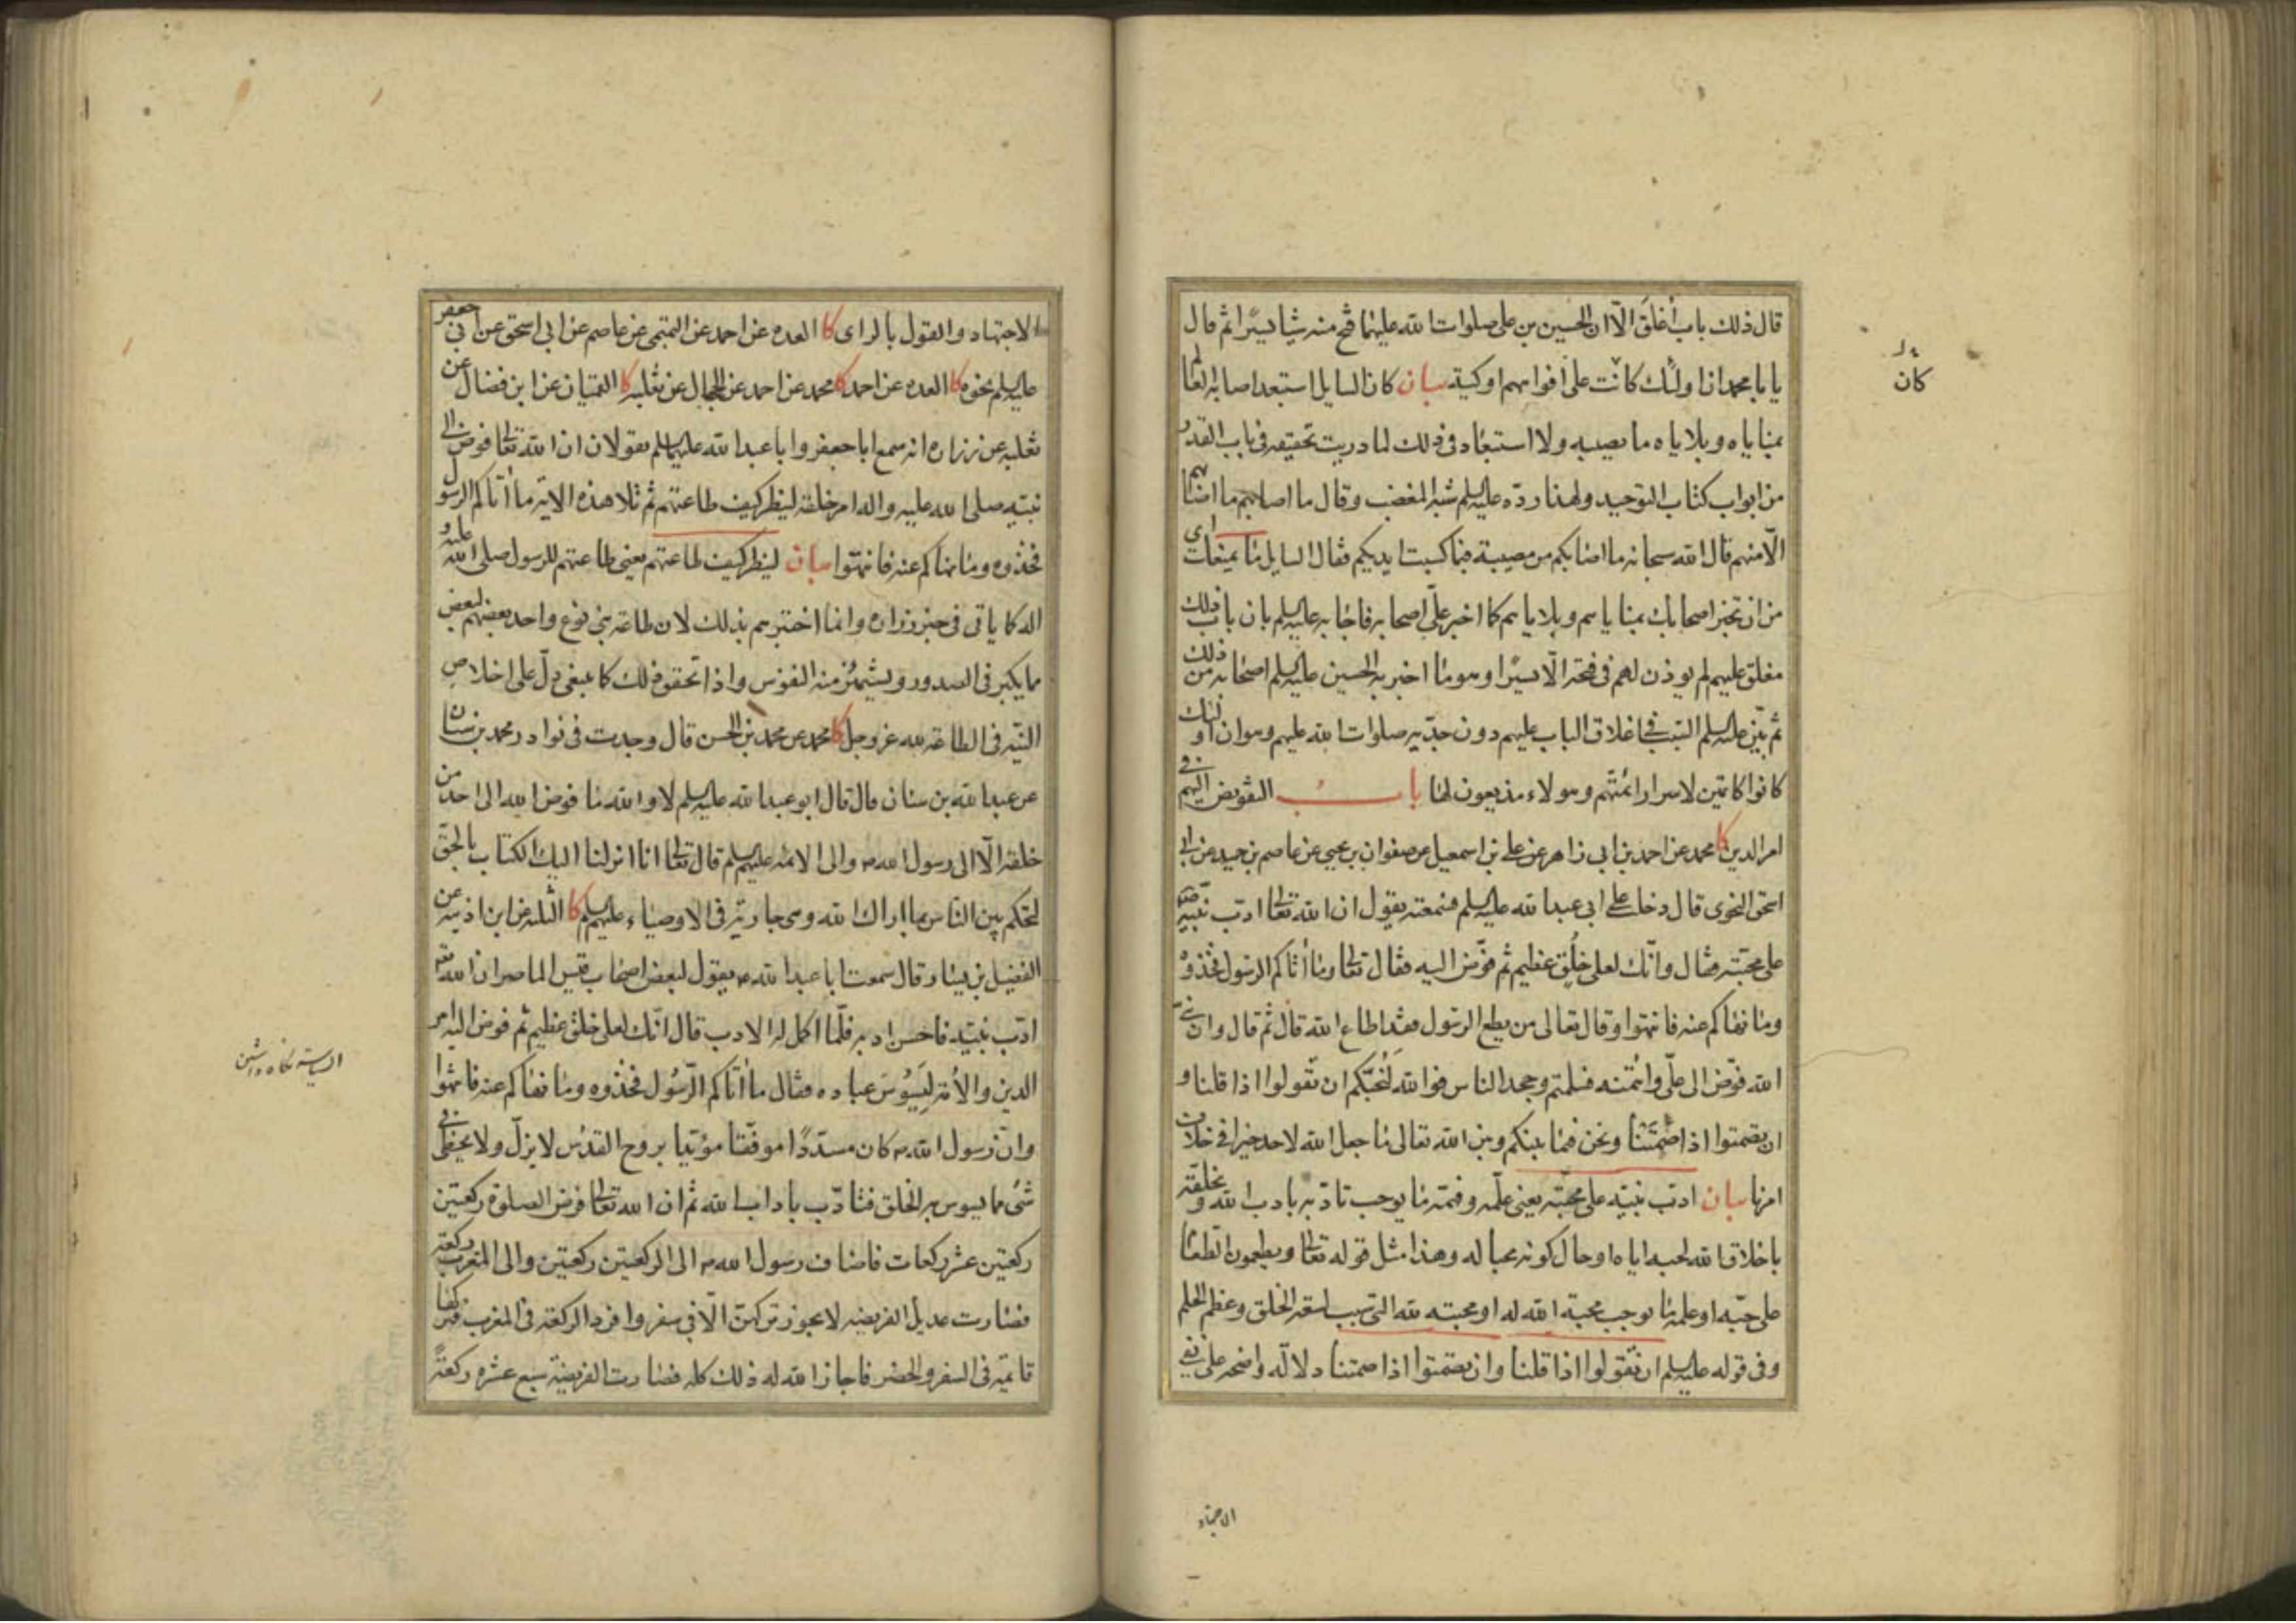 قال ذلك باب أغلق الّا ان الحسين بن على صلوات الله عليهما فتح منه شيئا يسيرا ثم قال
يا با محمد ان اولئك كانت على افواههم اوكية بيان كان السايل استبعد اصابة العلم
بمناياه وبلاياه ما يصيبه ولا استبعاد فى ذلك لما دريت تحقيقه فى باب القدر
من ابواب كتاب التوحيد ولهذا ردّه عليه السلم شبه المغضب وقال ما اصابهم ما اصابهم
الّا منهم قال الله سبحانه ما اصابكم من مصيبة فبما كسبت ايديكم فقال السايل ما يمنعك
من ان تخبر اصحابك بمناياهم وبلاياهم كما اخبر علىّ اصحابه فاجابه عليه السلم بان باب ذلك
مغلق عليهم لم يوذن لهم فى فتحه الّا يسيرًا وهو ما اخبر به الحسين عليه السلم اصحابه من ذلك
ثم بيّن عليه السلم السّبب فى اغلاق الباب عليهم دون جدّيه صلوات الله عليهم وهو ان اولئك
كانوا كاتمين لاسرار ائمّتهم وهولاء مذيعون لها باب التفويض اليهم فى
امر الدين كا محمد عن احمد بن ابى زاهر عن على بن اسمعيل عن صفوان بن يحيى عن عاصم بن حميد عن ابى
اسحق النحوى قال دخلت على ابى عبد الله عليه السلم فسمعته يقول ان الله تعالى ادّب نبيّه
على محبّته فقال وانّك لعلى خلق عظيم ثم فوّض اليه فقال تعالى وما أتاكم الرسول فخذوه
وما نهاكم عنه فانتهوا وقال تعالى من يطع الرسول فقد اطاع الله قال ثم قال وان نبىّ
الله فوّض الى علىّ وائتمنه فسلمتم وجحد الناس فوالله لنحبّكم ان تقولوا اذا قلنا و
ان تصمتوا اذا صمتنا ونحن فيما بينكم وبين الله تعالى ما جعل الله لاحد خيرا فى خلاف
امرنا بيان ادّب نبيّه على محبّته يعنى علّمه وفهّمه ما يوجب تادّبه باداب الله وتخلّقه
باخلاق الله لحبه اياه او حال كونه محبا له وهذا مثل قوله تعالى ويطعمون الطعام
على حبّه او علمه ما يوجب محبة الله له او محبته لله التى سبب لسعة الخلق وعظم الحلم
وفى قوله عليه السلم ان تقولوا اذا قلنا وان تصمتوا اذا صمتنا دلالة واضحه على نفى
كان
الاجتهاد
الاجتهاد والقول بالراى كا العده عن احمد عن التميمى عن عاصم عن ابى اسحق عن ابى جعفر
عليه السلم نحوه كا العده عن احمد كا محمد عن احمد عن الحجال عن ثعلبه كا القميان عن ابن فضال عن
ثعلبه عن زراره انه سمع ابا جعفر وابا عبد الله عليهما السلم يقولان ان الله تعالى فوض الى
نبيّه صلى الله عليه واله امر خلقه لينظر كيف طاعتهم ثم تلا هذه الاية ما أتاكم الرسول
فخذوه وما نهاكم عنه فانتهوا بيان لينظر كيف طاعتهم يعنى طاعتهم للرسول صلى الله عليه و
اله كما ياتى فى خبر زراره وانما اختبرهم بذلك لان طاعة بنى نوع واحد بعضهم لبعض
مما يكبر فى الصدور ويشمئز منه النفوس واذا تحقق ذلك كما ينبغى دلّ على اخلاص
النيّه فى الطاعة لله عز وجل كا محمد عن محمد بن الحسن قال وجدت فى نوادر محمد بن سنان
عن عبد الله بن سنان قال قال ابو عبد الله عليه السلم لا والله ما فوض الله الى احد من
خلقه الّا الى رسول الله ص والى الائمه عليهم السلم قال تعالى انا انزلنا اليك الكتاب بالحقّ
لتحكم بين الناس بما اراك الله وهى جارية فى الاوصياء عليهم السلم كا الثلثه عن ابن اذينه عن
الفضيل بن يسار قال سمعت ابا عبد الله ع يقول لبعض اصحاب قيس الماصر ان الله تعالى
ادّب نبيّه فاحسن ادبه فلمّا اكمل له الادب قال انّك لعلى خلق عظيم ثم فوض اليه امر
الدين والأمّة ليسوس عباده فقال ما أتاكم الرّسول فخذوه وما نهاكم عنه فانتهوا
وان رسول الله ص كان مسدّدًا موفّقا مؤيّدا بروح القدس لا يزلّ ولا يخطى فى
شئ مما يسوس به الخلق فتادّب باداب الله ثم ان الله تعالى فرض الصلوة ركعتين
ركعتين عشر ركعات فاضاف رسول الله ص الى الركعتين ركعتين والى المغرب ركعة
فصارت عديل الفريضه لا يجوز تركهنّ الّا فى سفر وافرد الركعة فى المغرب فتركها
قائمة فى السفر والحضر فاجاز الله له ذلك كله فصارت الفريضة سبع عشره ركعةً
السياسة نكاه داشتن